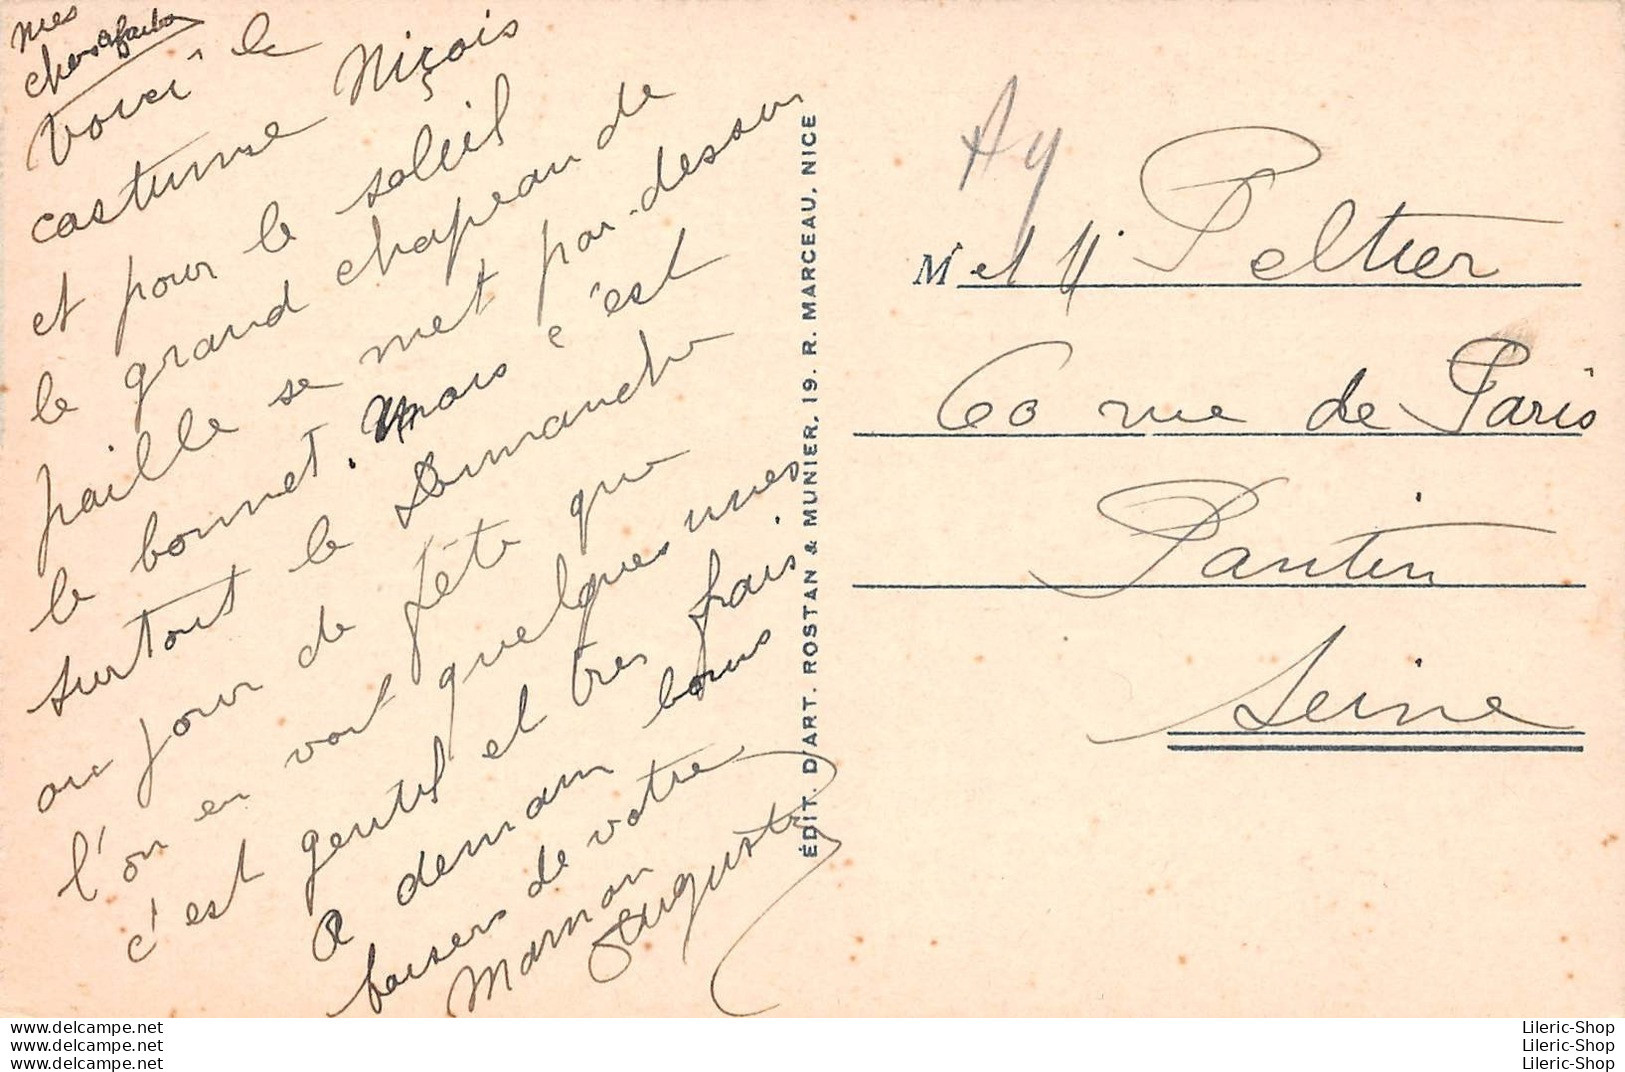 mes
chers
Voici le
costume Niçois
et pour le soleil
le grand chapeau de
paille se met par-dessus
le bonnet. Mais c'est
surtout le Dimanche
ou jour de fête que
l'on en voit quelques unes
c'est gentil et très frais.
A demain bons
baisers de votre
Maman
Auguste
ÉDIT. D'ART. ROSTAN & MUNIER, 19. R. MARCEAU. NICE
Ay
M et M Peltier
60 rue de Paris
Pantin
Seine
www.delcampe.net
www.delcampe.net
www.delcampe.net
Lileric-Shop
Lileric-Shop
Lileric-Shop